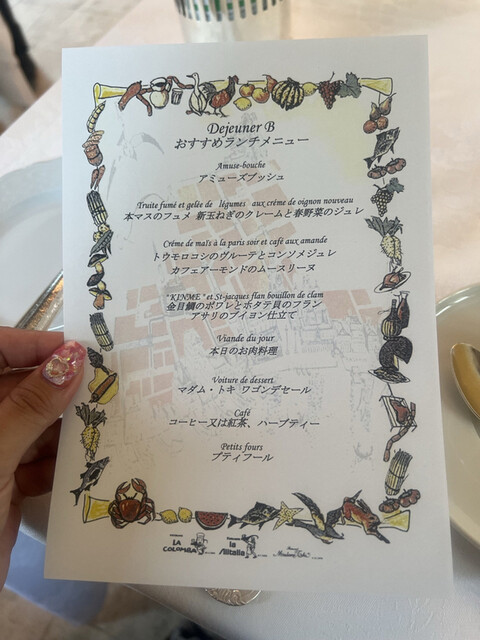 Dejeuner B
おすすめランチメニュー
Amuse-bouche
アミューズブッシュ
Truite fumé et gelée de légumes aux créme de oignon nouveau
本マスのフュメ 新玉ねぎのクレームと春野菜のジュレ
Créme de maïs à la paris soir et café aux amande
トウモロコシのヴルーテとコンソメジュレ
カフェアーモンドのムースリーヌ
"KINME" et St-jacques flan bouillon de clam
金目鯛のポワレとホタテ貝のフラン
アサリのブイヨン仕立て
Viande du jour
本日のお肉料理
Voiture de dessert
マダム・トキ ワゴンデセール
Café
コーヒー又は紅茶、ハーブティー
Petits fours
プティフール
LA COLOMBA
la Alitalia
Madame Toki